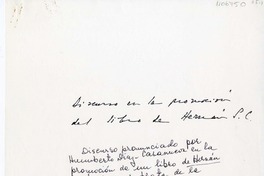 Discurso en la promoción
del libro de Hernán S. C
Discurso pronunciado por
Humberto Díaz-Casanueva en la
promoción de un libro de Hernán
de la